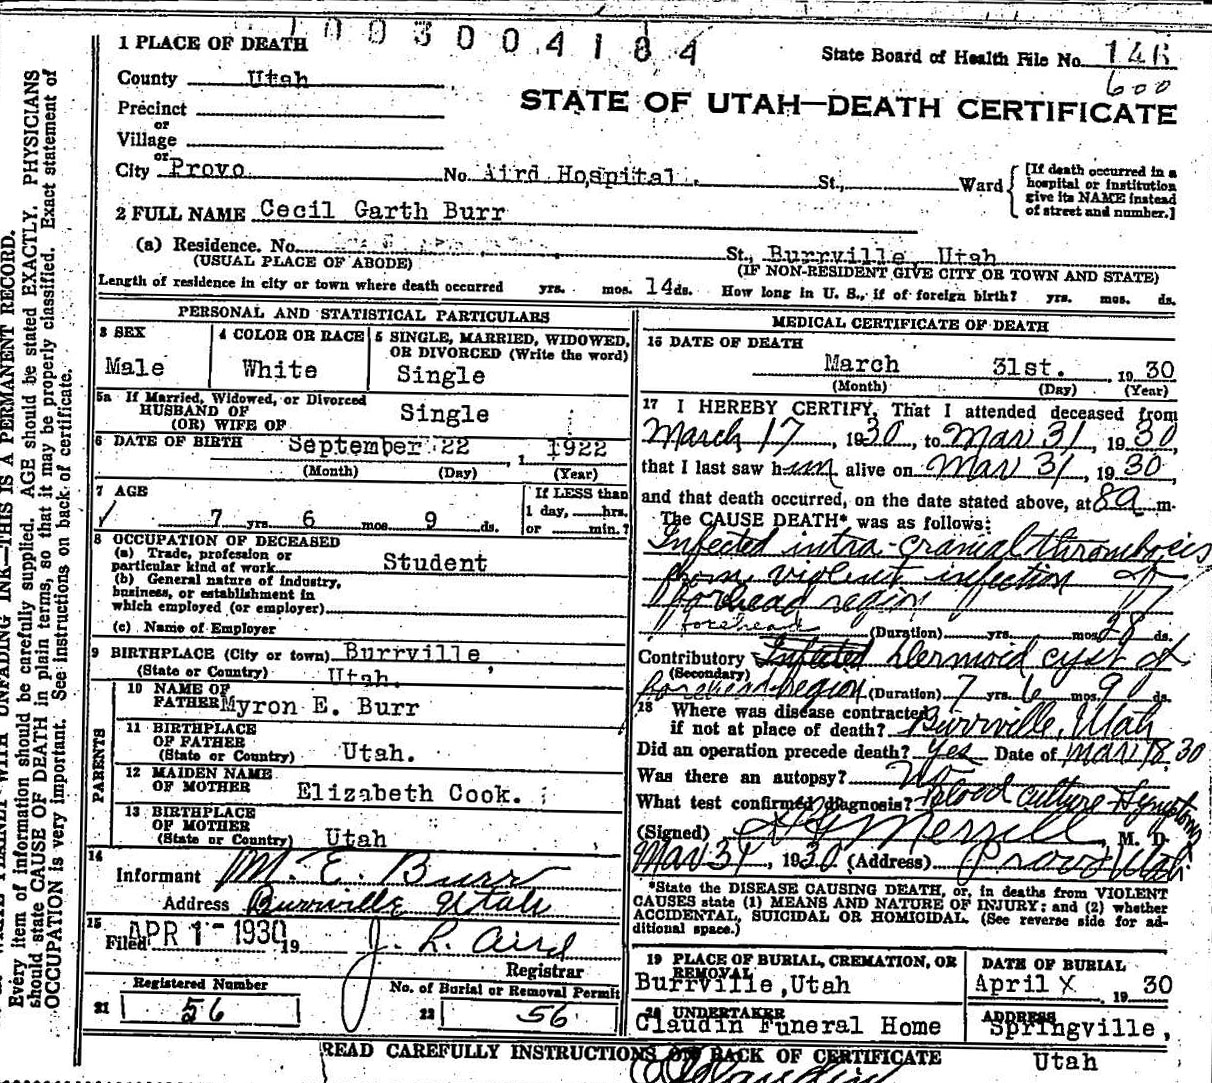 1003004184
1 PLACE OF DEATH
State Board of Health File No. 146
600
County Utah
STATE OF UTAH—DEATH CERTIFICATE
Precinct
or
Village
or
City Provo No. Aird Hospital. St., Ward
[If death occurred in a
hospital or institution
give its NAME instead
of street and number.]
2 FULL NAME Cecil Garth Burr
(a) Residence. No. St., Burrville, Utah
(USUAL PLACE OF ABODE) (IF NON-RESIDENT GIVE CITY OR TOWN AND STATE)
Length of residence in city or town where death occurred yrs. mos. 14 ds. How long in U. S., if of foreign birth? yrs. mos. ds.
PERSONAL AND STATISTICAL PARTICULARS
3 SEX
Male
4 COLOR OR RACE
White
5 SINGLE, MARRIED, WIDOWED,
OR DIVORCED (Write the word)
Single
5a If Married, Widowed, or Divorced
HUSBAND OF
(OR) WIFE OF
Single
6 DATE OF BIRTH September 22, 1 1922
(Month) (Day) (Year)
7 AGE
7 yrs. 6 mos. 9 ds.
If LESS than
1 day, hrs.
or min.?
8 OCCUPATION OF DECEASED
(a) Trade, profession or
particular kind of work Student
(b) General nature of industry,
business, or establishment in
which employed (or employer)
(c) Name of Employer
9 BIRTHPLACE (City or town) Burrville,
(State or Country) Utah.
PARENTS
10 NAME OF
FATHER Myron E. Burr
11 BIRTHPLACE
OF FATHER
(State or Country) Utah.
12 MAIDEN NAME
OF MOTHER Elizabeth Cook.
13 BIRTHPLACE
OF MOTHER
(State or Country) Utah
14
Informant M. E. Burr
Address Burrville Utah
15
Filed APR 1 - 1930 19 J. L. Aird
Registrar
Registered Number
21 56
No. of Burial or Removal Permit
22 56
MEDICAL CERTIFICATE OF DEATH
16 DATE OF DEATH
March 31st. , 19 30
(Month) (Day) (Year)
17 I HEREBY CERTIFY, That I attended deceased from
March 17, 1930, to Mar 31, 1930,
that I last saw him alive on Mar 31, 1930,
and that death occurred, on the date stated above, at 8a m.
The CAUSE DEATH* was as follows:
Infected intra-cranial thrombosis
from violent infection of
forehead region
forehead
(Duration) yrs. mos. 28 ds.
Contributory Infected Dermoid cyst of
(Secondary)
forehead region (Duration) 7 yrs. 6 mos. 9 ds.
18 Where was disease contracted
if not at place of death? Burrville, Utah
Did an operation precede death? Yes Date of Mar 18, 30
Was there an autopsy? No
What test confirmed diagnosis? Blood culture Symptoms
(Signed) Merrill, M. D.
Mar 31, 1930 (Address) Provo Utah
*State the DISEASE CAUSING DEATH, or, in deaths from VIOLENT
CAUSES state (1) MEANS AND NATURE OF INJURY; and (2) whether
ACCIDENTAL, SUICIDAL OR HOMICIDAL. (See reverse side for ad-
ditional space.)
19 PLACE OF BURIAL, CREMATION, OR
REMOVAL
Burrville, Utah
DATE OF BURIAL
April X , 19 30
20 UNDERTAKER
Claudin Funeral Home
ADDRESS
Springville,
Utah
READ CAREFULLY INSTRUCTIONS ON BACK OF CERTIFICATE
WITH UNFADING INK—THIS IS A PERMANENT RECORD.
Every item of information should be carefully supplied. AGE should be stated EXACTLY. PHYSICIANS
should state CAUSE OF DEATH in plain terms, so that it may be properly classified. Exact statement of
OCCUPATION is very important. See instructions on back of certificate.